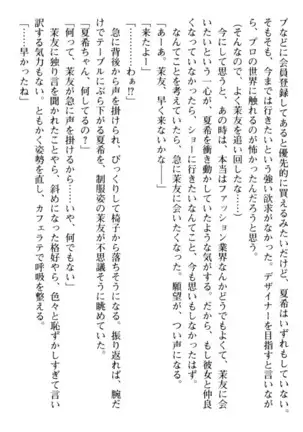 ブなどに会員登録してあると優先的に買えるみたいだけど、夏希はいずれもしていない。
そもそも、今までは行きたいという強い欲求がなかった。デザイナーを目指すと言いなが
ら、プロの世界に触れるのが怖かったんだろうと思う。
（そんなので、よく茉友を追い回したな……）
今にして思うと、あの時は、本当はファッション業界なんかどうでもよくて、茉友に会
いたいという一心が、夏希を衝き動かしていたような気がする。だから、もし彼女と仲良
くなっていなかったら、ショーに行きたいなんてこと、今も思いもしなかったはず。
なんてことを考えていたら、急に茉友に会いたくなってきた。願望が、つい声になる。
「あーあ。茉友、早く来ないかな――」
「来たよー」
「……わぁ!?」
急に背後から声を掛けられ、びっくりして椅子から落ちそうになる。振り返れば、腕だ
けでテーブルにぶら下がる夏希を、制服姿の茉友が不思議そうに眺めていた。
「夏希ちゃん、何してるの？」
「何って、茉友が急に声を掛けるから……いや、何でもない」
茉友に独り言を聞かれたことやら、斜めになった格好やら、色々と恥ずかしすぎて言い
訳する気力もない。ともかく姿勢を直し、カフェラテで呼吸を整える。
「……早かったね」